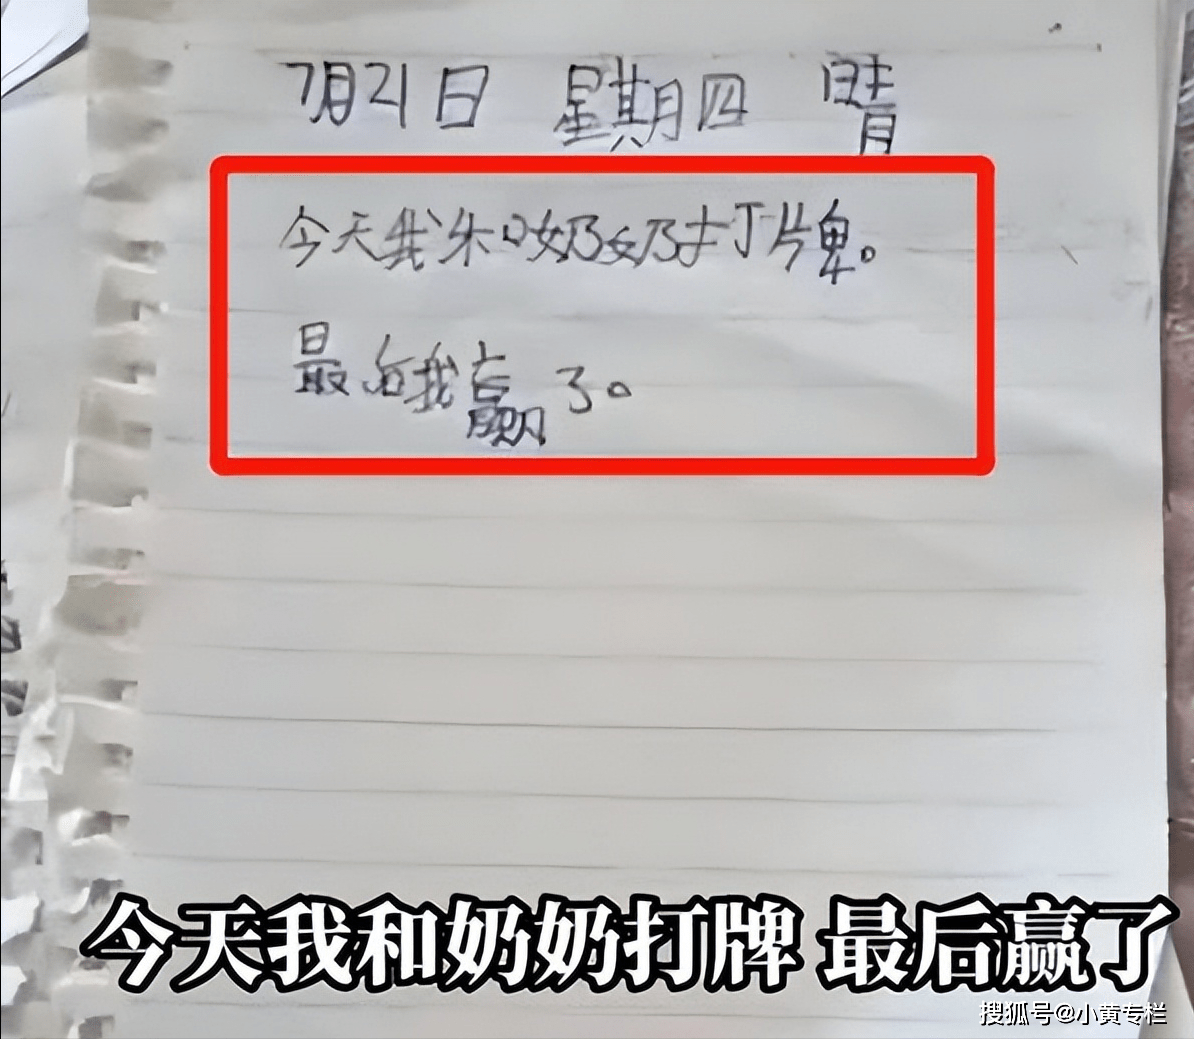 7月21日 星期四 晴
今天我和奶奶打牌。
最后我赢了。
今天我和奶奶打牌 最后赢了
搜狐号@小黄专栏